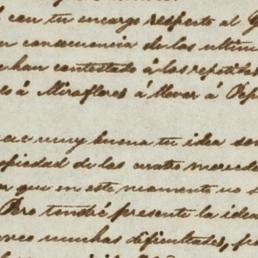 con tu encargo respecto al G
consecuencia de las ultim
han contestado á las repetida
á Miraflores á llevar á Pep
muy buena tu idea
opiedad de las cuatro merced
que en este momento no s
Pero tendré presente la idea
muchas dificultades,